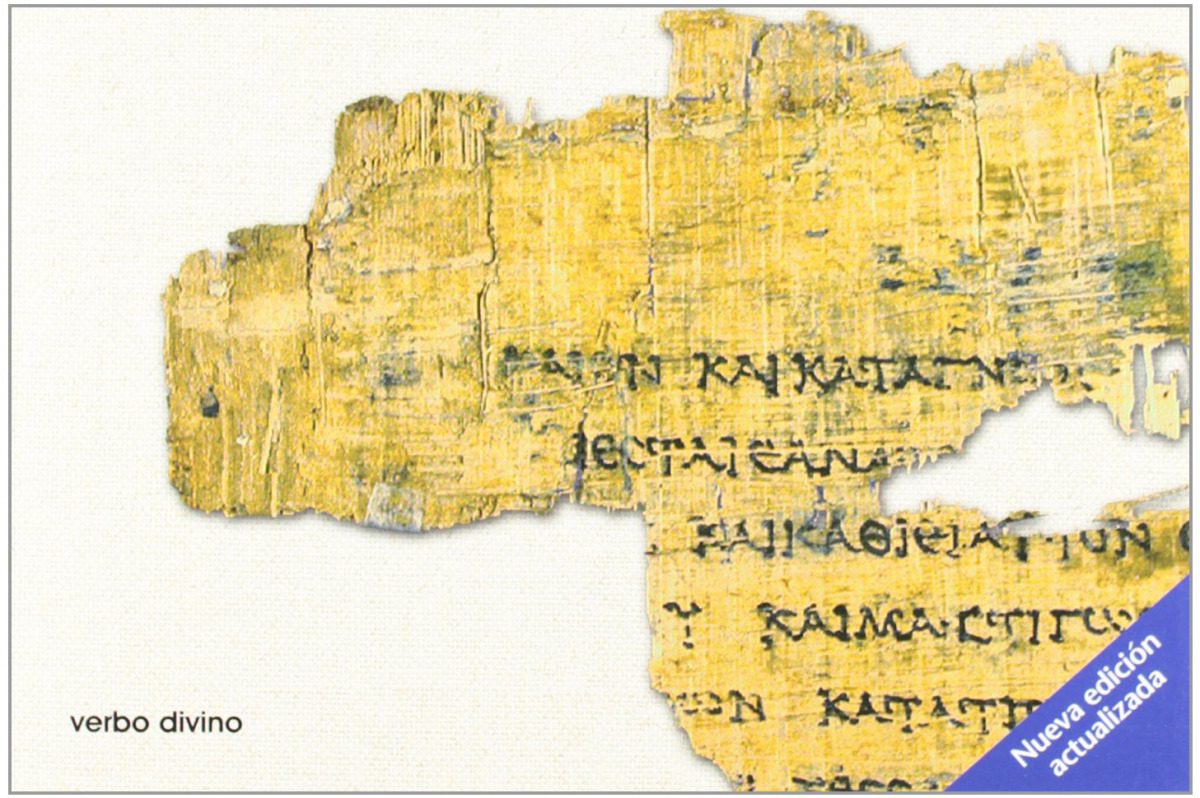 ΚΑΙΟΝ ΚΑΙ ΚΑΤΑΓΝ
ΕϹΤΑΙ ΕΑΝ Α
ΚΑΙ ΚΑΘΙΕΙ ΑΥΤΟΝ
Υ ΚΑΙ ΜΑϹΤΙΓΩ
ΩΝ ΚΑΤΑ Τ
verbo divino
Nueva edición
actualizada